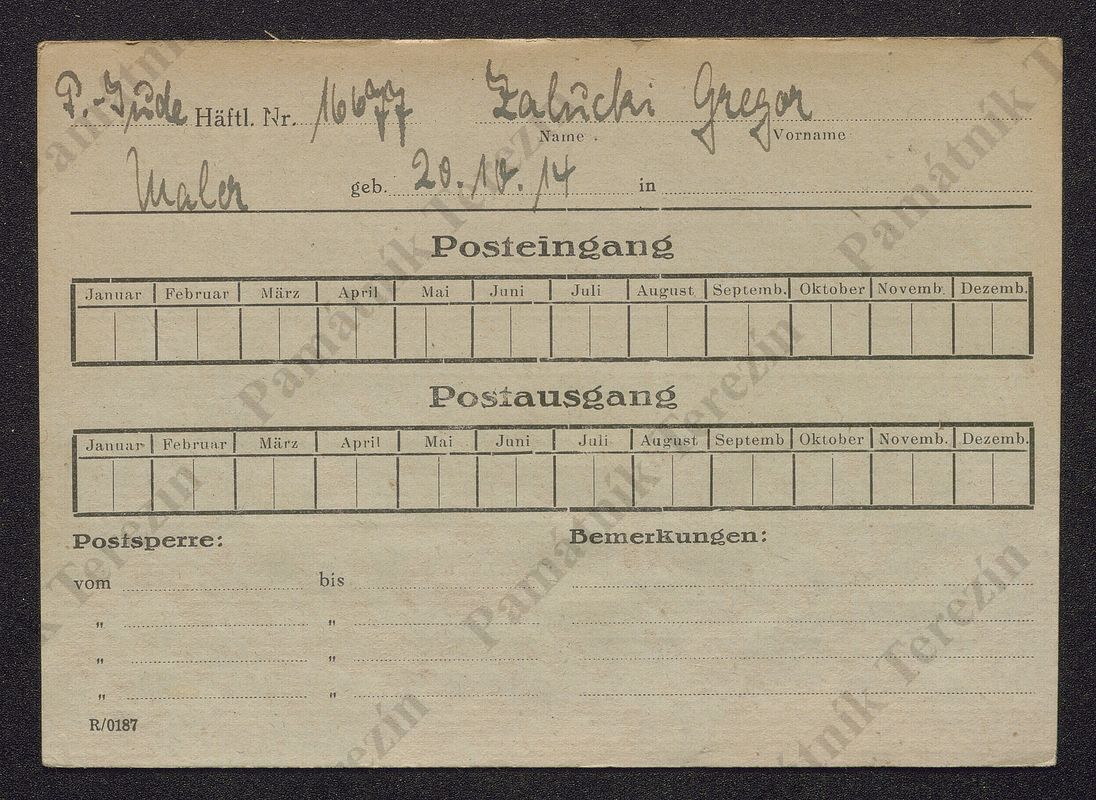 P.-Jude Häftl. Nr. 16677 Zalucki Gregor
Name. Vorname
Maler geb. 20.10.14 in
Posteingang
Januar Februar März April Mai Juni Juli August Septemb. Oktober Novemb. Dezemb.
Postausgang
Januar Februar März April Mai Juni Juli August Septemb Oktober Novemb. Dezemb.
Postsperre: Bemerkungen:
vom bis
" "
" "
" "
R/0187
Památník Terezín